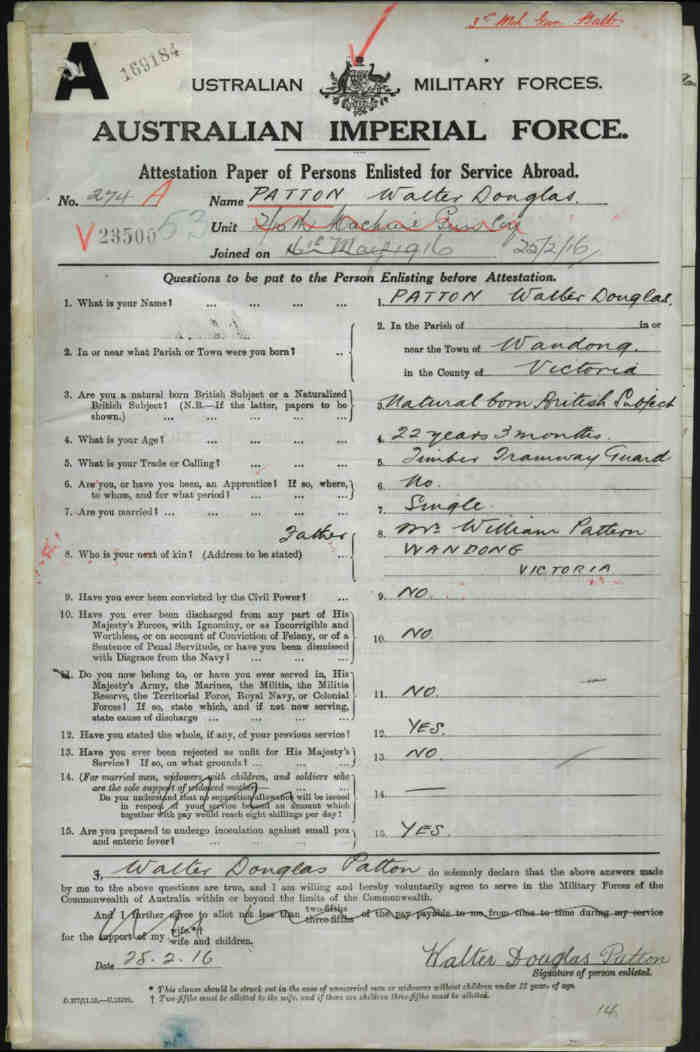 3rd Mch Gun Battn
A 169184
USTRALIAN MILITARY FORCES.
AUSTRALIAN IMPERIAL FORCE.
Attestation Paper of Persons Enlisted for Service Abroad.
No. 274 A Name PATTON Walter Douglas.
V 23500 53 Unit Machine Gun Coy
Joined on May 1916 25/2/16
Questions to be put to the Person Enlisting before Attestation.
1. What is your Name? ... ... ... ... 1. PATTON Walter Douglas.
2. In or near what Parish or Town were you born? .. 2. In the Parish of in or
near the Town of Wandong.
in the County of Victoria
3. Are you a natural born British Subject or a Naturalized
British Subject? (N.B.—If the latter, papers to be
shown.) ... ... ... ... 3. Natural born British Subject
4. What is your Age? ... ... ... ... 4. 22 years 3 months.
5. What is your Trade or Calling? ... ... ... 5. Timber Tramway Guard
6. Are you, or have you been, an Apprentice? If so, where,
to whom, and for what period? ... ... ... 6. No.
7. Are you married? ... ... ... ... ... 7. Single.
Father 8. Mr William Pattern
8. Who is your next of kin? (Address to be stated) ... WANDONG
VICTORIA
9. Have you ever been convicted by the Civil Power? ... 9. NO.
10. Have you ever been discharged from any part of His
Majesty's Forces, with Ignominy, or as Incorrigible and
Worthless, or on account of Conviction of Felony, or of a
Sentence of Penal Servitude, or have you been dismissed
with Disgrace from the Navy? ... ... ... 10. NO
11. Do you now belong to, or have you ever served in, His
Majesty's Army, the Marines, the Militia, the Militia
Reserve, the Territorial Force, Royal Navy, or Colonial
Forces? If so, state which, and if not now serving,
state cause of discharge ... ... ... ... 11. NO.
12. Have you stated the whole, if any, of your previous service? 12. YES.
13. Have you ever been rejected as unfit for His Majesty's
Service? If so, on what grounds? ... ... ... 13. NO.
14. (For married men, widowers with children, and soldiers who
are the sole support of widowed mother ... ...
Do you understand that no separation allowance will be issued
in respect of your service beyond an amount which
together with pay would reach eight shillings per day? 14. —
15. Are you prepared to undergo inoculation against small pox
and enteric fever? ... ... ... ... 15. YES.
I, Walter Douglas Patton do solemnly declare that the above answers made
by me to the above questions are true, and I am willing and hereby voluntarily agree to serve in the Military Forces of the
Commonwealth of Australia within or beyond the limits of the Commonwealth.
And I further agree to allot not less than two-fifths three-fifths of the pay payable to me from time to time during my service
for the support of my wife *† wife and children.
Date 25.2.16 Walter Douglas Patton
Signature of person enlisted.
* This clause should be struck out in the case of unmarried men or widowers without children under 18 years of age.
† Two-fifths must be allotted to the wife, and if there are children three-fifths must be allotted.
14.